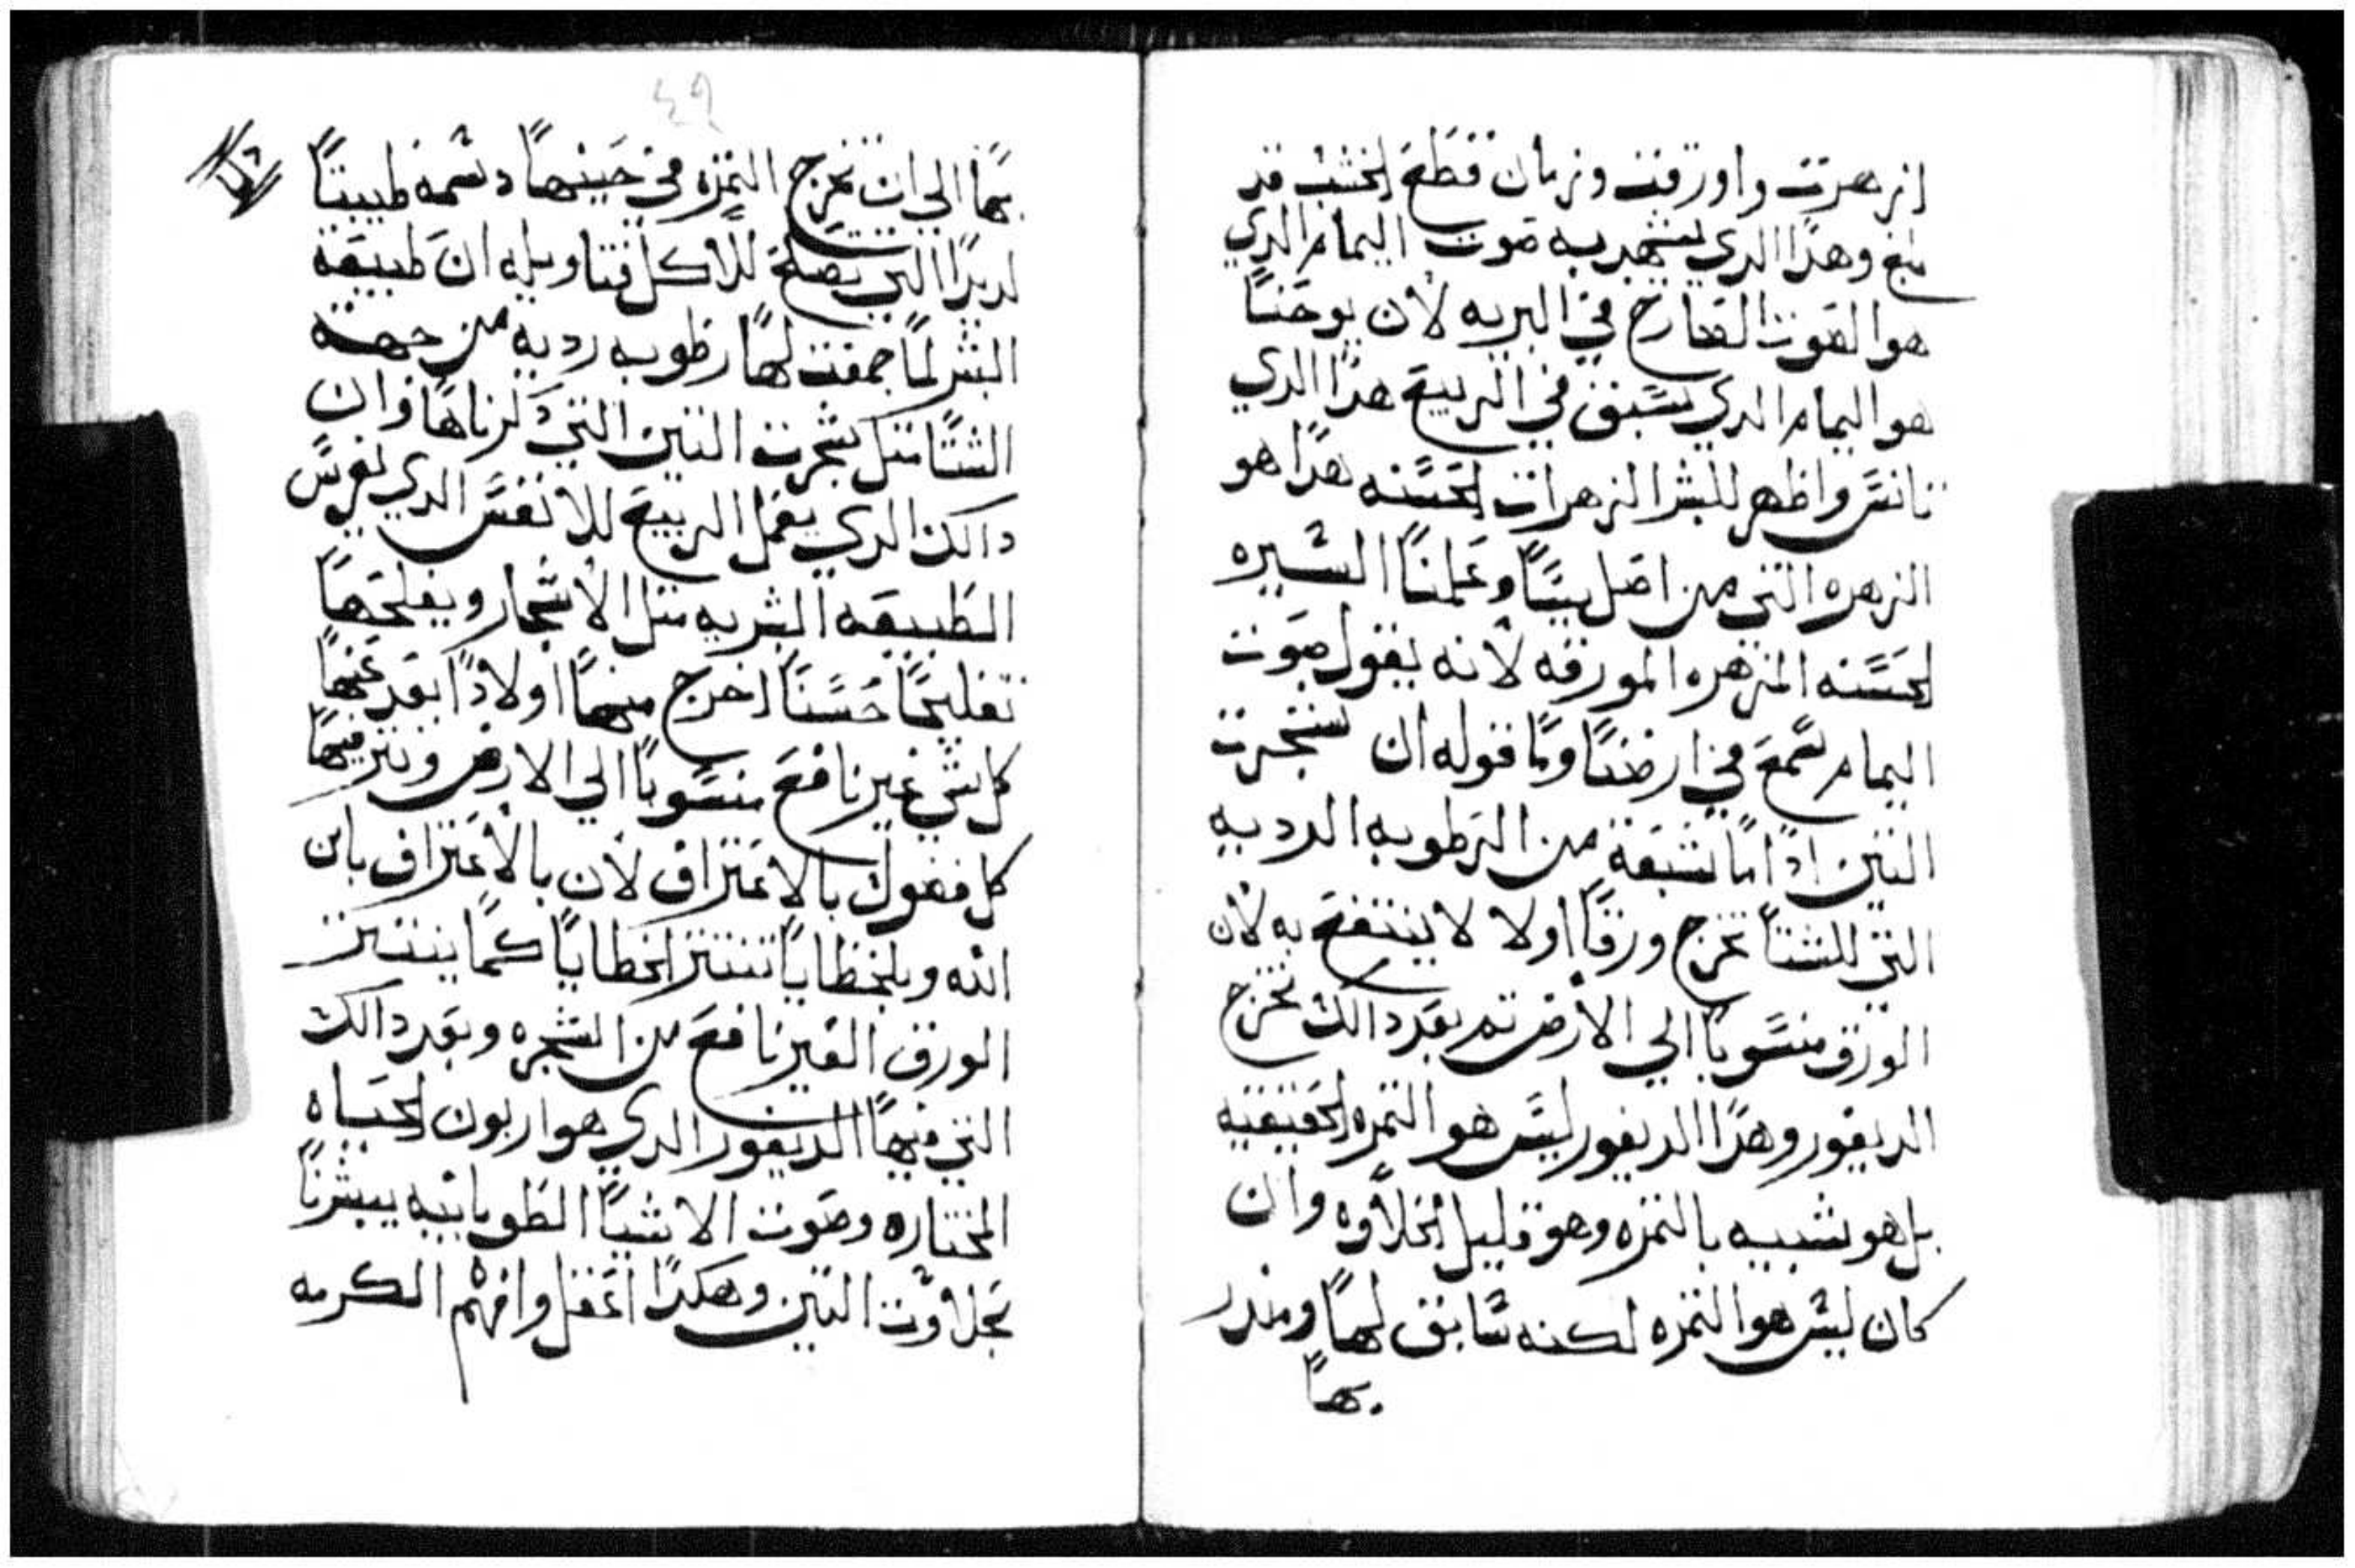 ازهرت واورقت وزمان قطع الخشب قد
بلغ وهدا الدي يشهد به صوت اليمام الدي
هو الصوت الصارخ في البريه لأن يوحنا
هو اليمام الدي سبق في الربيع هدا الدي
تانس واظهر للبشر الزهرات الحسنه هدا هو
الزهره التي من اصل يسا وعلمنا السيره
الحسنه المزهره المورقه لأنه يقول صوت
اليمام سمع في ارضنا وما قوله ان شجرت
التين ادا ما شبعة من الرطوبه الرديه
التي للشتا تخرج ورقا اولا لا ينتفع به لأن
الورق منسوبا الي الأرض تم بعد دالك تخرج
الديفور وهدا الديفور ليس هو التمره الحقيقيه
بل هو شبيه بالتمره وهو قليل الحلاوه وان
كان ليس هو التمره لكنه سابق لها ومندر
بها
٤٩
بها الي ان تخرج التمره في حينها دسمه طيبتا
لديدا التي تصلح للأكل فتاويله ان طبيعة
البشر لما جمعت لها رطوبه رديه من جهة
الشتا متل شجرت التين التي دكرناها وان
دالك الدي يعمل الربيع للأنفس الدي يغرس
الطبيعه البشريه متل الأشجار ويفلحها
تفليحا حسنا اخرج منها اولادا بعد عنها
كل شي غير نافع منسوبا الي الارض ونتر فيها
كل فضول بالاعتراف لأن بالأعتراف بابن
الله وبالخطايا تنتتر الخطايا كما ينتتر
الورق الغير نافع من الشجره وبعد دالك
التي فيها الديفور الدي هو اربون الحياه
المختاره وصوت الاشيا الطوبانيه يبشرنا
بحلاوت التين وهكدا اعقل وافهم الكرمه